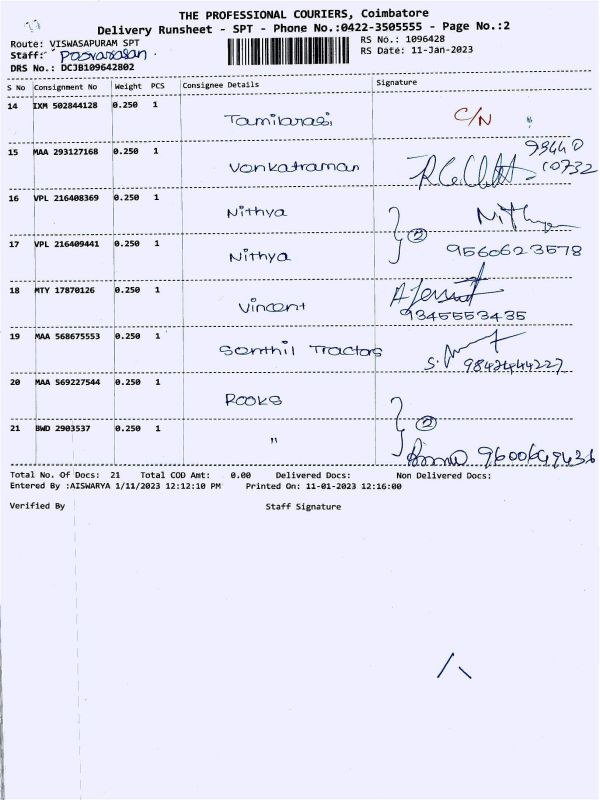 THE PROFESSIONAL COURIERS, Coimbatore
Delivery Runsheet - SPT - Phone No.:0422-3505555 - Page No.:2
Route: VISWASAPURAM SPT
RS No.: 1096428
Staff: Poovarasan.
RS Date: 11-Jan-2023
DRS No.: DCJB109642802
S No Consignment No Weight PCS Consignee Details Signature
14 IXM 502844128 0.250 1 Tamilarasi C/N
15 MAA 293127168 0.250 1 Venkatraman 99440
10732
16 VPL 216408369 0.250 1 Nithya Nithya
17 VPL 216409441 0.250 1 Nithya 2 9560623578
18 MTY 17870126 0.250 1 Vincent
9345553435
19 MAA 568675553 0.250 1 Senthil Tractors S. 9842444227
20 MAA 569227544 0.250 1 Rooks
21 BWD 2903537 0.250 1 " 2
9600649436
Total No. Of Docs: 21 Total COD Amt: 0.00 Delivered Docs: Non Delivered Docs:
Entered By :AISWARYA 1/11/2023 12:12:10 PM Printed On: 11-01-2023 12:16:00
Verified By Staff Signature